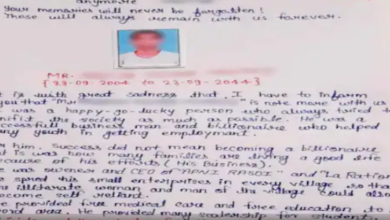 anymore
Your memories will never be forgotten!
These will always remain with us forever.
MR.
[23-09-2004 to 23-09-2044]
It is with great sadness that I have to inform
you that "Mr " is note more with us
was a happy-go-lucky person who always tried to
the society as much as possible. He was a
successful business man and billionaire who helped
many youth in getting employment.
him, success did not mean becoming a billionaire
it is was how many families are living a good life
because of his efforts (his Business).
was owner and CEO of " RASOI" and "La Ration
his small enterprises in every village so that
illiterate woman and man of the village could also
become self reliant.
provided free medical care and free education, to
He provided many for students